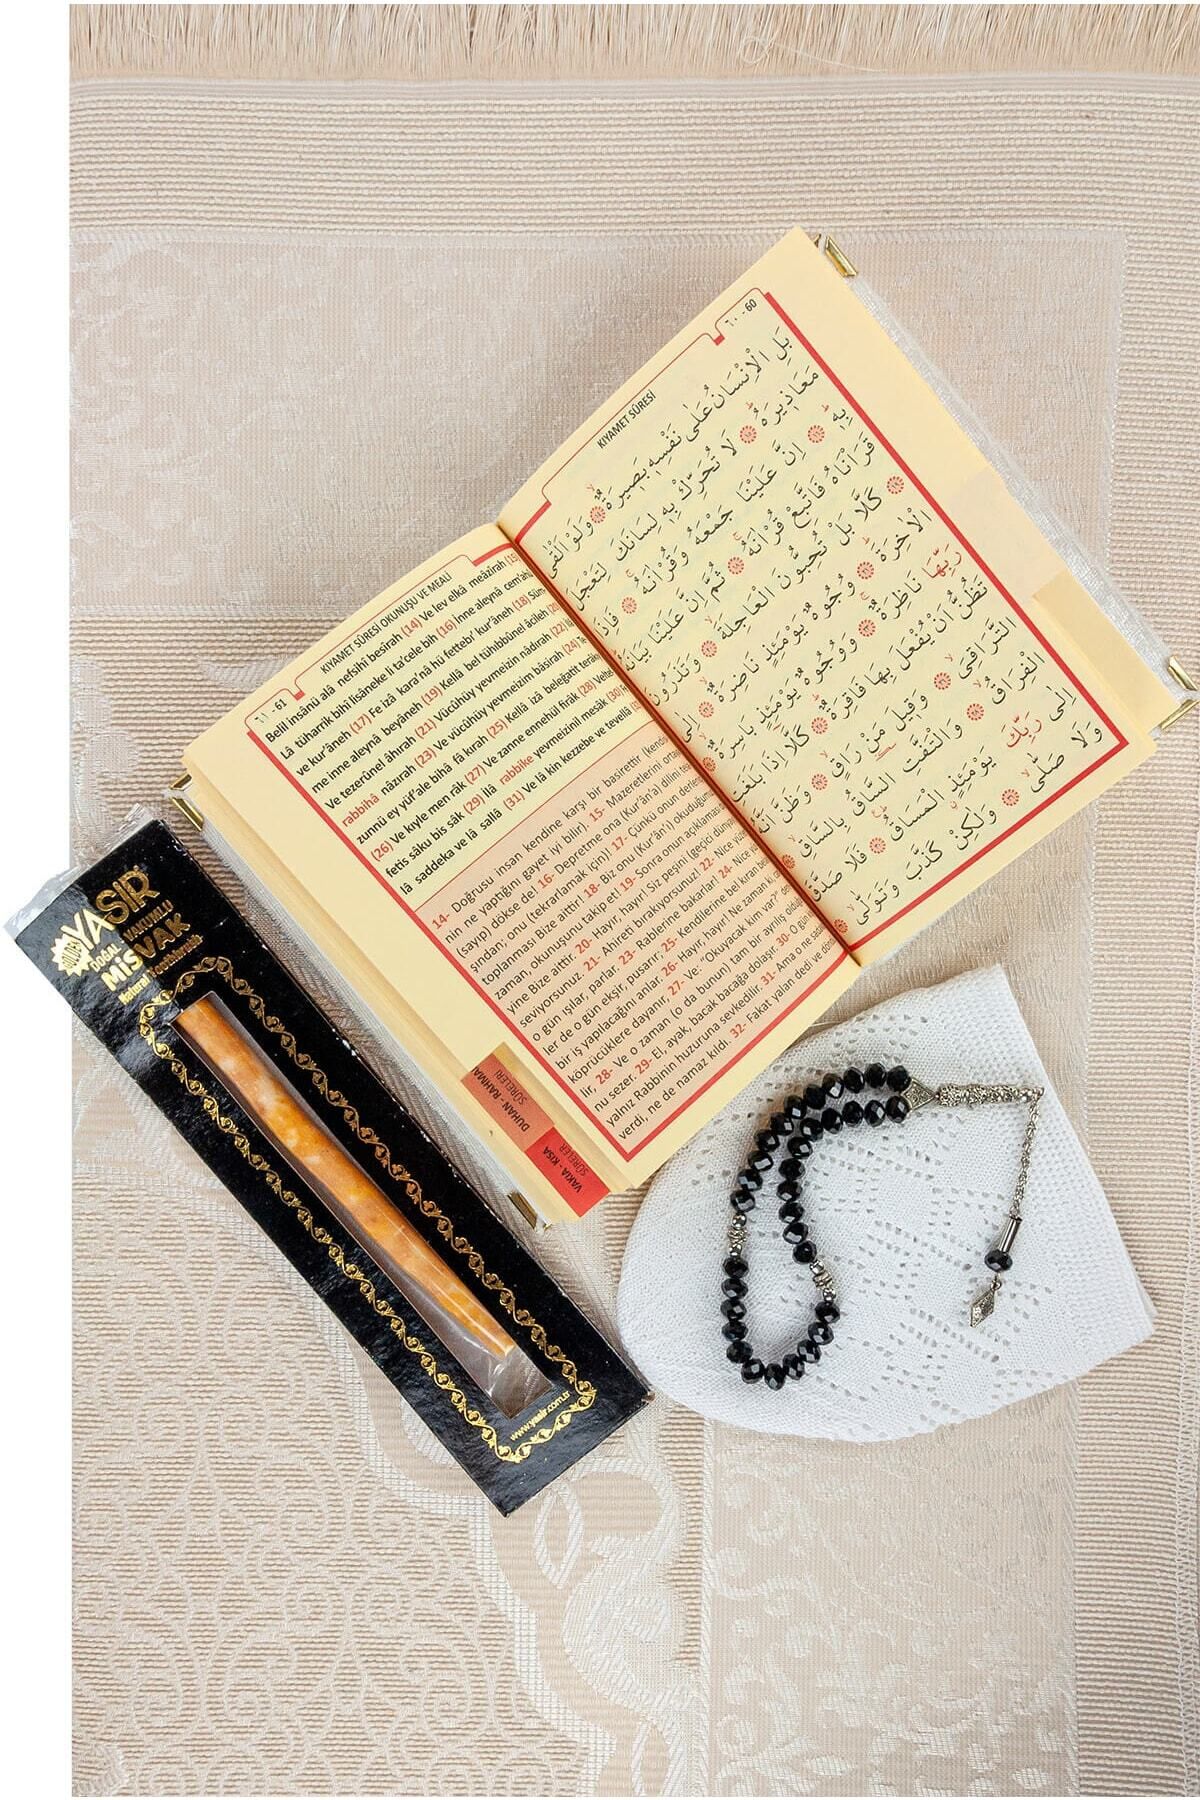 ٦٠ - 60
KIYAMET SÛRESİ
بَلِ الْاِنْسَانُ عَلٰى نَفْسِه۪ بَص۪يرَةٌ ﴿١٤﴾ وَلَوْ اَلْقٰى
مَعَاذ۪يرَهُ ﴿١٥﴾ لَا تُحَرِّكْ بِه۪ لِسَانَكَ لِتَعْجَلَ
بِه۪ ﴿١٦﴾ اِنَّ عَلَيْنَا جَمْعَهُ وَقُرْاٰنَهُ ﴿١٧﴾ فَاِذَا
قَرَأْنَاهُ فَاتَّبِعْ قُرْاٰنَهُ ﴿١٨﴾ ثُمَّ اِنَّ عَلَيْنَا بَيَانَهُ
﴿١٩﴾ كَلَّا بَلْ تُحِبُّونَ الْعَاجِلَةَ ﴿٢٠﴾ وَتَذَرُونَ
الْاٰخِرَةَ ﴿٢١﴾ وُجُوهٌ يَوْمَئِذٍ نَاضِرَةٌ ﴿٢٢﴾ اِلٰى
رَبِّهَا نَاظِرَةٌ ﴿٢٣﴾ وَوُجُوهٌ يَوْمَئِذٍ بَاسِرَةٌ ﴿٢٤﴾
تَظُنُّ اَنْ يُفْعَلَ بِهَا فَاقِرَةٌ ﴿٢٥﴾ كَلَّا اِذَا بَلَغَتِ
التَّرَاقِيَ ﴿٢٦﴾ وَق۪يلَ مَنْ رَاقٍ ﴿٢٧﴾ وَظَنَّ اَنَّهُ
الْفِرَاقُ ﴿٢٨﴾ وَالْتَفَّتِ السَّاقُ بِالسَّاقِ ﴿٢٩﴾
اِلٰى رَبِّكَ يَوْمَئِذٍ الْمَسَاقُ ﴿٣٠﴾ فَلَا صَدَّقَ
وَلَا صَلّٰى ﴿٣١﴾ وَلٰكِنْ كَذَّبَ وَتَوَلّٰى ﴿٣٢﴾
٦١ - 61
KIYAMET SÛRESİ OKUNUŞU VE MEALİ
Belil insânü alâ nefsihî besîrah (14) Ve lev elkâ meâzîrah (15)
Lâ tüharrik bihî lisâneke li ta'cele bih (16) İnne aleynâ cem'ahû
ve kur'âneh (17) Fe izâ kara'nâ hü fettebi' kur'âneh (18) Süm
me inne aleynâ beyâneh (19) Kellâ bel tühibbûnel âcileh (20)
Ve tezerûnel âhırah (21) Vücûhüy yevmeizin nâdırah (22)
rabbihâ nâzırah (23) Ve vücûhüy yevmeizim bâsirah (24) Te
zunnü ey yüf'ale bihâ fâ kırah (25) Kellâ izâ beleğatit
(26) Ve kıyle men râk (27) Ve zanne ennehül firâk (28)
fetis sâku bis sâk (29) İlâ rabbike yevmeizinil mesâk (30)
lâ saddeka ve lâ sallâ (31) Ve lâ kin kezzebe ve tevellâ
14- Doğrusu insan kendine karşı bir basirettir (kendi
nin ne yaptığını gayet iyi bilir). 15- Mazeretlerini
(sayıp) dökse de! 16- Depretme ona (Kur'ân'a) dilini
şından, onu (tekrarlamak için)! 17- Çünkü onun
toplanması Bize aittir! 18- Biz onu (Kur'ân'ı) okuduğumuz
zaman, okunuşunu takip et! 19- Sonra onun açıklaması
yine Bize aittir. 20- Hayır, hayır! Siz peşini (geçici
seviyorsunuz. 21- Ahireti bırakıyorsunuz! 22- Nice
o gün ışılar, parlar. 23- Rablerine bakarlar! 24- Nice
ler de o gün ekşir, pusarır; 25- Kendilerine bel kıran
bir iş yapılacağını anlar. 26- Hayır, hayır! Ne zaman ki
köprücüklere dayanır, 27- Ve: "Okuyacak kim var?"
lir, 28- Ve o zaman (o da bunun) tam bir ayrılış
nu sezer. 29- El, ayak, bacak bacağa dolaşır. 30- O gün
yalnız Rabbinin huzuruna sevkedilir. 31- Ama o ne
verdi, ne de namaz kıldı. 32- Fakat yalan dedi ve
DUHAN - RAHMAN
SÛRELERİ
VAKIA - KISA
SÛRELER
YASIR
DOĞAL VAKUMLU
MİSVAK
Natural Toothbrush
www.yasir.com.tr